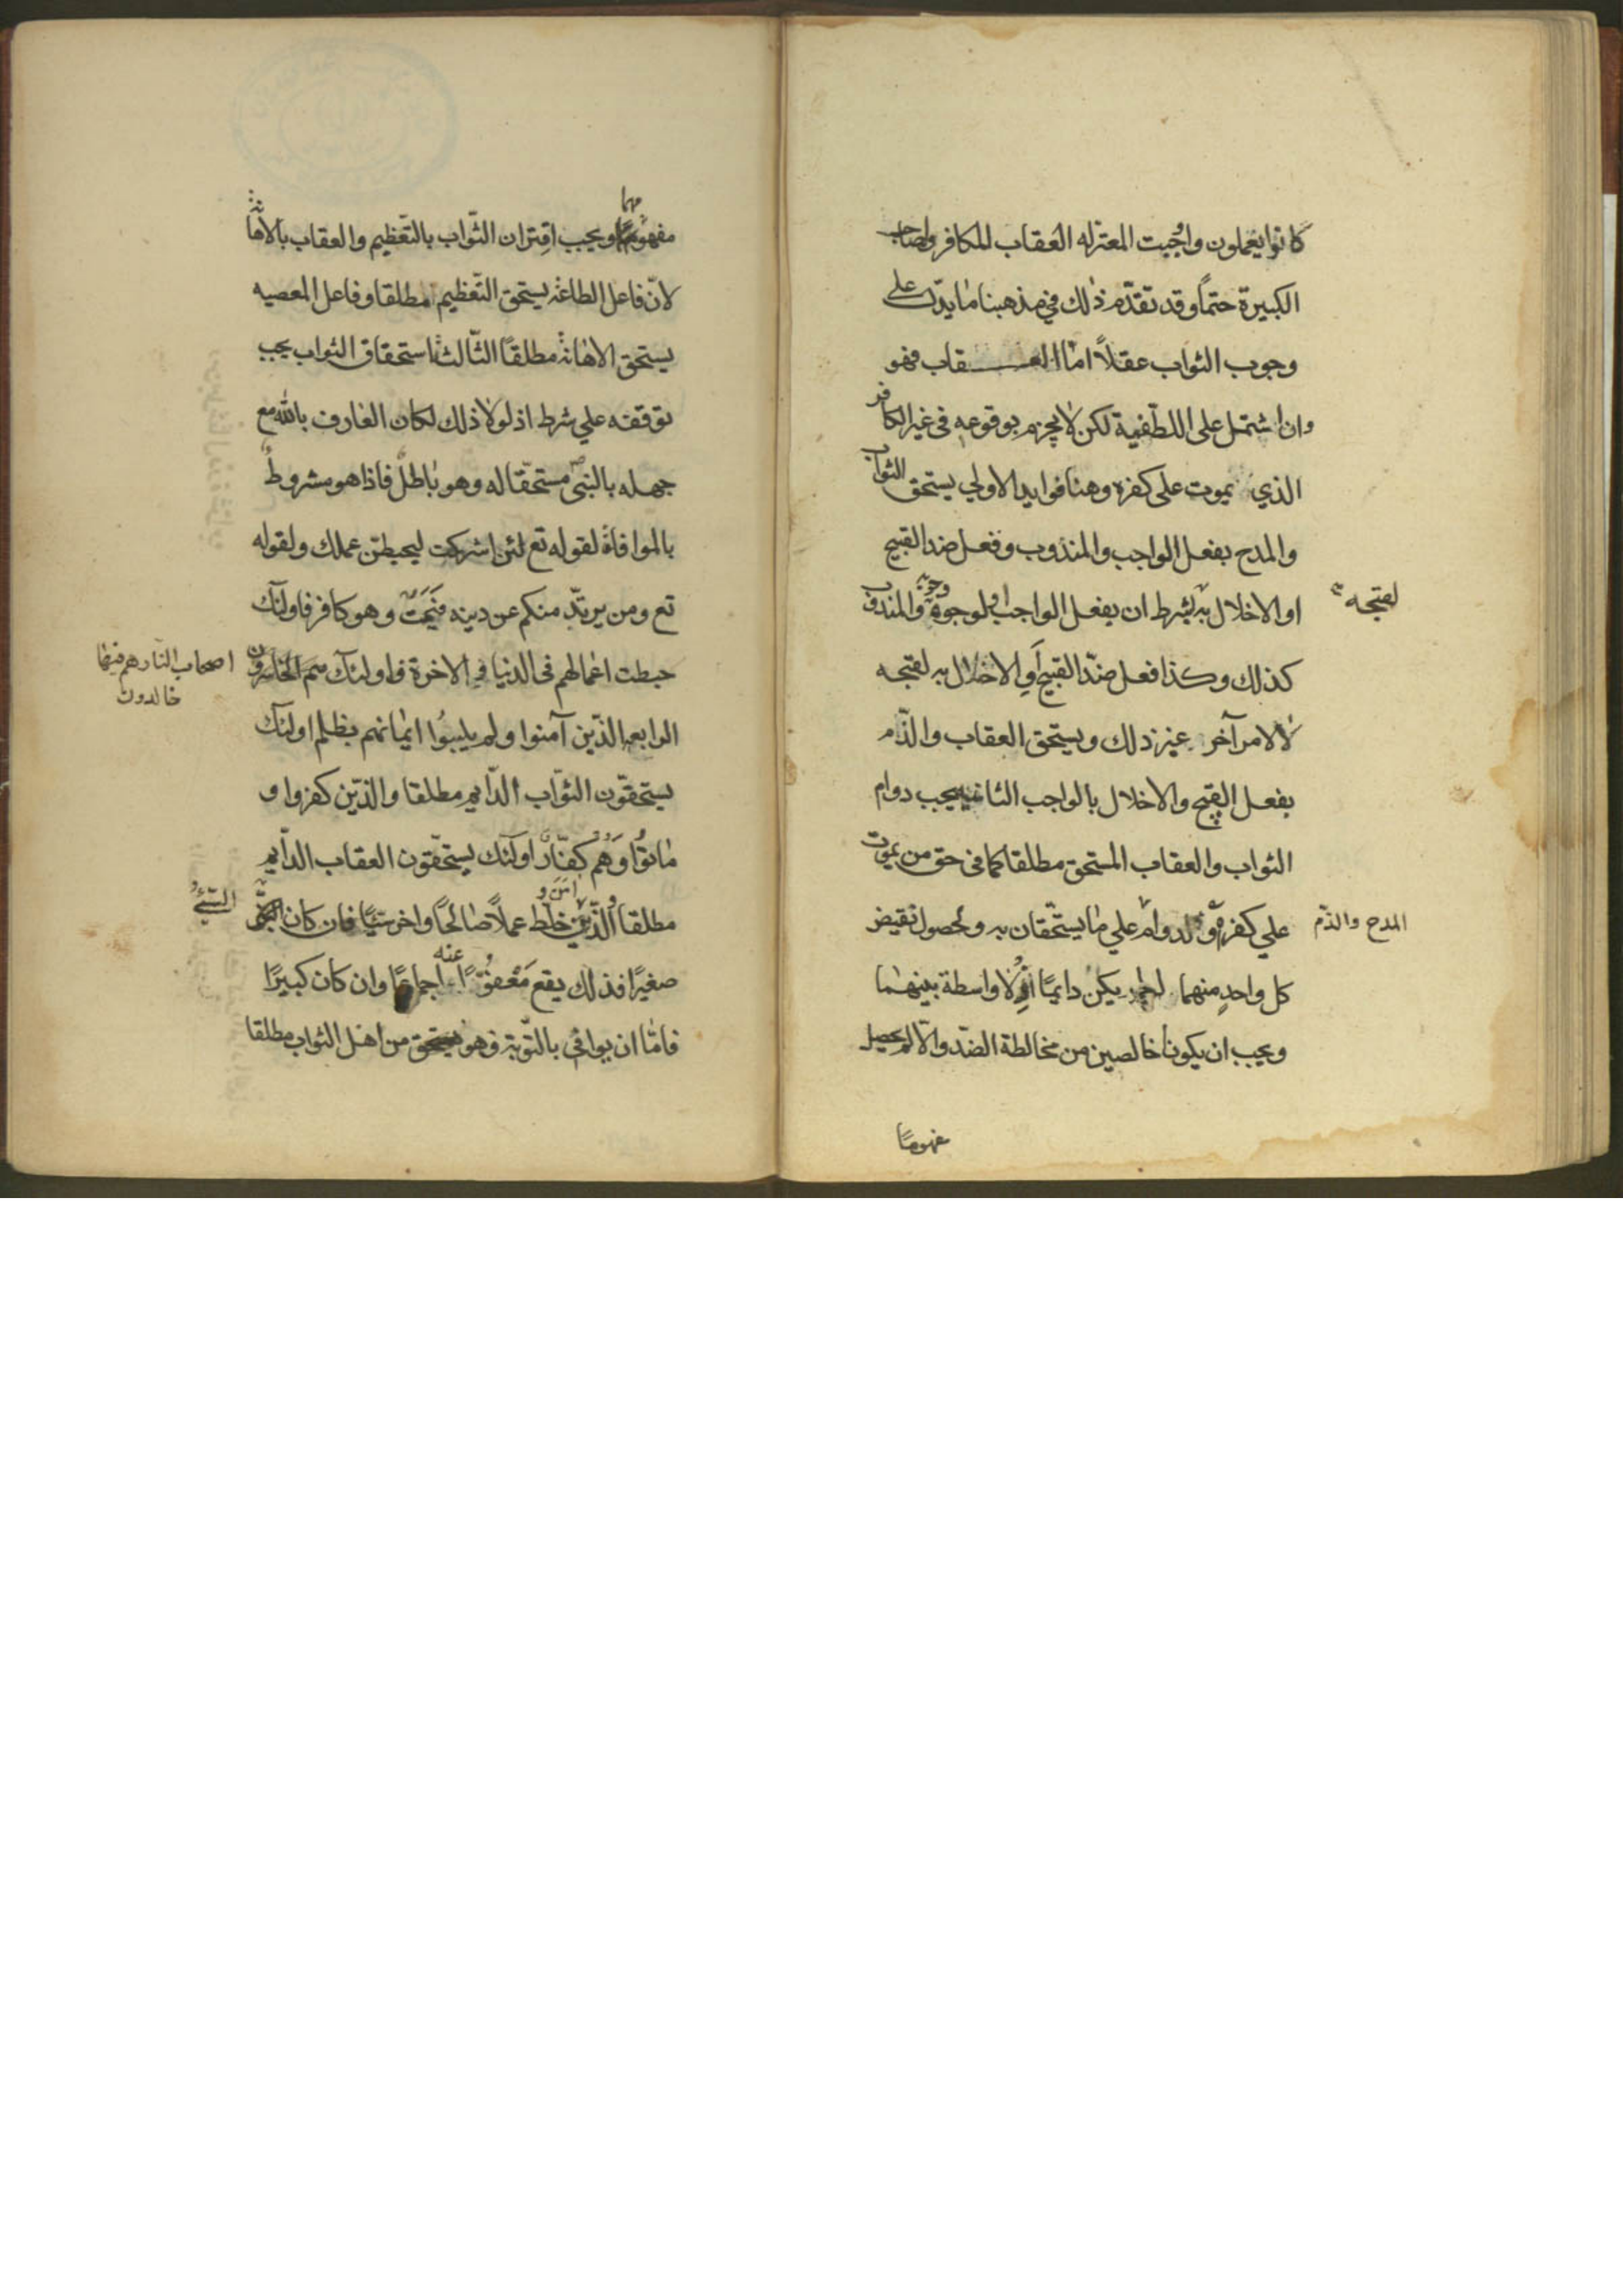 كانوا يعملون واوجبت المعتزله العقاب للكافر وصاحب
الكبيرة حتماً وقد تقدّم ذلك في مذهبنا ما يدّل على
وجوب الثواب عقلاً امّا العقاب فهو
وان اشتمل على اللطفية لكن لا يجزم بوقوعه فى غير الكافر
الذي يموت على كفره وهنا فوايد الاولي يستحق الثواب
والمدح بفعل الواجب والمندوب وفعل ضد القبيح
او الاخلال به بشرط ان يفعل الواجب لوجوبه او وجه وجوبه والمندوب
لقبحه
كذلك وكذا فعل ضدّ القبيح او الاخلال به لقبحه
لا لامر آخر غير ذلك ويستحق العقاب والذّم
بفعل القبيح والاخلال بالواجب الثانيه يجب دوام
الثواب والعقاب المستحق مطلقا كما فى حق من يموت
علي كفره لدوام علي ما يستحّقان به ولحصول نقيض
المدح والذّم
كل واحدٍ منهما لو لم يكن دايمًا اذ لا واسطة بينهما
ويجب ان يكونا خالصين من مخالطة الضدّ والّا لم يحصل
مفهومًا
مفهومهما ويجب اقتران الثّواب بالتّعظيم والعقاب بالاهانة
لانّ فاعل الطاعة يستحق التّعظيم مطلقا وفاعل المعصيه
يستحق الاهانة مطلقًا الثّالثة استحقاق الثواب يجب
توقفه علي شرط اذ لولا ذلك لكان العارف بالله مع
جهله بالنبى مستحقّا له وهو باطل فاذا هو مشروط
بالموافاة لقوله تع لئن اشركت ليحبطنّ عملك ولقوله
تع ومن يرتدّ منكم عن دينه فَيَمُت وهو كافر فاولئك
حبطت اعمالهم فى الدنيا في الاخرة و اولئك هم الخاسرون
اصحاب النّار هم فيها
خالدون
الرابعه الذّين آمنوا ولم يلبسُوا ايمانهم بظلم اولئك
يستحقّون الثوّاب الدّايم مطلقا والذّين كفروا و
ماتوُا وَهُم كفّار اولئك يستحقّون العقاب الدّايم
مطلقا والّذين آمن و خلط عملاً صالحًا واخر سيّئًا فان كان
السّيّئُ
صغيرًا فذلك يقع مَعْفوًّا عنه اجماعًا وان كان كبيرًا
فامّا ان يوافي بالتّوبة فهو من اهل الثواب مطلقا